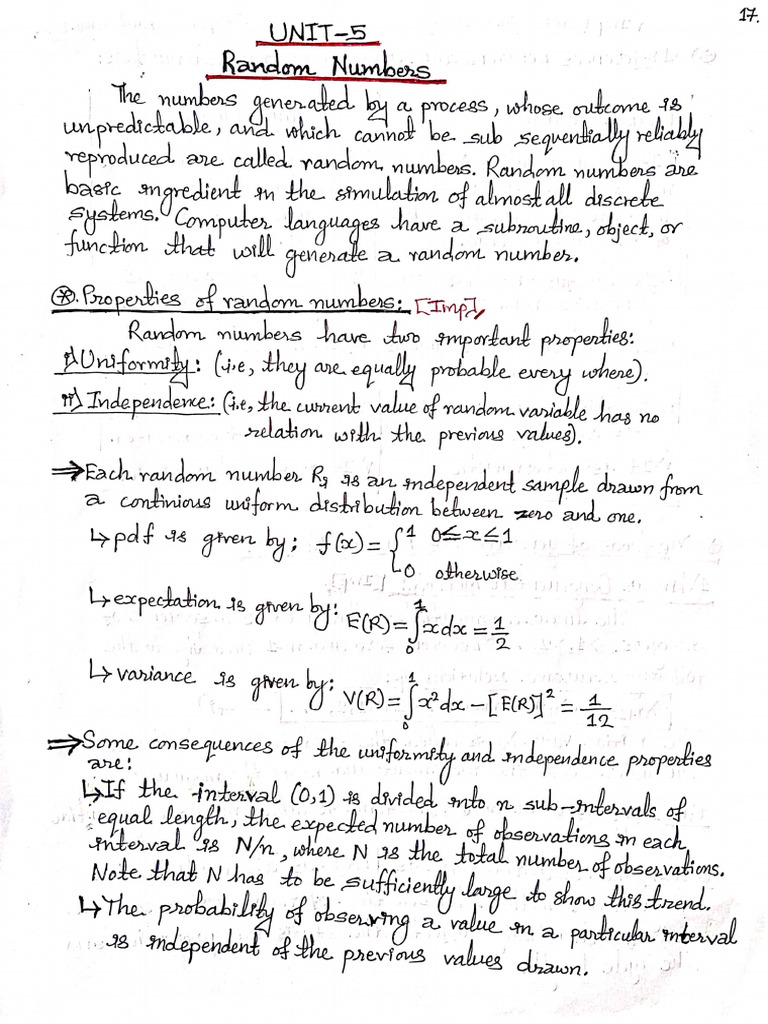 17.
UNIT-5
Random Numbers
The numbers generated by a process, whose outcome is
unpredictable, and which cannot be sub sequentially reliably
reproduced are called random numbers. Random numbers are
basic ingredient in the simulation of almost all discrete
systems. Computer languages have a subroutine, object, or
function that will generate a random number.
⊛. Properties of random numbers: [Imp]
Random numbers have two important properties:
i) Uniformity: (i.e, they are equally probable every where).
ii) Independence: (i.e, the current value of random variable has no
relation with the previous values).
⇒ Each random number Rᵢ is an independent sample drawn from
a continious uniform distribution between zero and one.
↳ pdf is given by: f(x) = { 1 0≤x≤1
0 otherwise
↳ expectation is given by: E(R) = ∫₀¹ x dx = 1/2
↳ variance is given by: V(R) = ∫₀¹ x² dx − [E(R)]² = 1/12
⇒ Some consequences of the uniformity and independence properties
are:
↳ If the interval (0,1) is divided into n sub-intervals of
equal length, the expected number of observations in each
interval is N/n, where N is the total number of observations.
Note that N has to be sufficiently large to show this trend.
↳ The probability of observing a value in a particular interval
is independent of the previous values drawn.